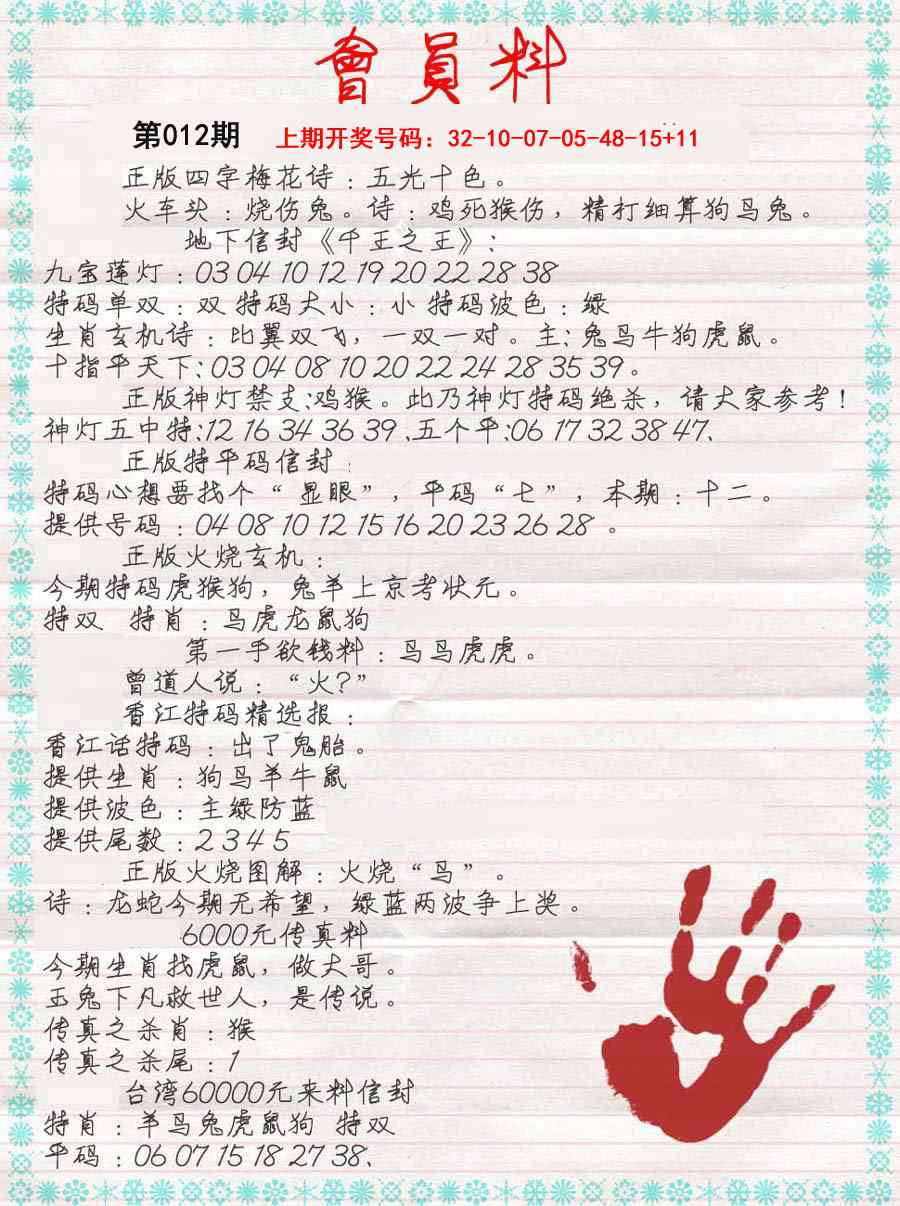 會員料
第012期 上期开奖号码：32-10-07-05-48-15+11
正版四字梅花诗：五光十色。
火车头：烧伤兔。诗：鸡死猴伤，精打细算狗马兔。
地下信封《千王之王》：
九宝莲灯：03 04 10 12 19 20 22 28 38
特码单双：双 特码大小：小 特码波色：绿
生肖玄机诗：比翼双飞，一双一对。主：兔马牛狗虎鼠。
十指平天下：03 04 08 10 20 22 24 28 35 39。
正版神灯禁支：鸡猴。此乃神灯特码绝杀，请大家参考！
神灯五中特：12 16 34 36 39、五个平：06 17 32 38 47、
正版特平码信封：
特码心想要找个“显眼”，平码“七”，本期：十二。
提供号码：04 08 10 12 15 16 20 23 26 28 。
正版火烧玄机：
今期特码虎猴狗，兔羊上京考状元。
特双 特肖：马虎龙鼠狗
第一手欲钱料：马马虎虎。
曾道人说：“火？”
香江特码精选报：
香江话特码：出了鬼胎。
提供生肖：狗马羊牛鼠
提供波色：主绿防蓝
提供尾数：2 3 4 5
正版火烧图解：火烧“马”。
诗：龙蛇今期无希望，绿蓝两波争上奖。
6000元传真料
今期生肖找虎鼠，做大哥。
玉兔下凡救世人，是传说。
传真之杀肖：猴
传真之杀尾：1
台湾60000元来料信封
特肖：羊马兔虎鼠狗 特双
平码：06 07 15 18 27 38、